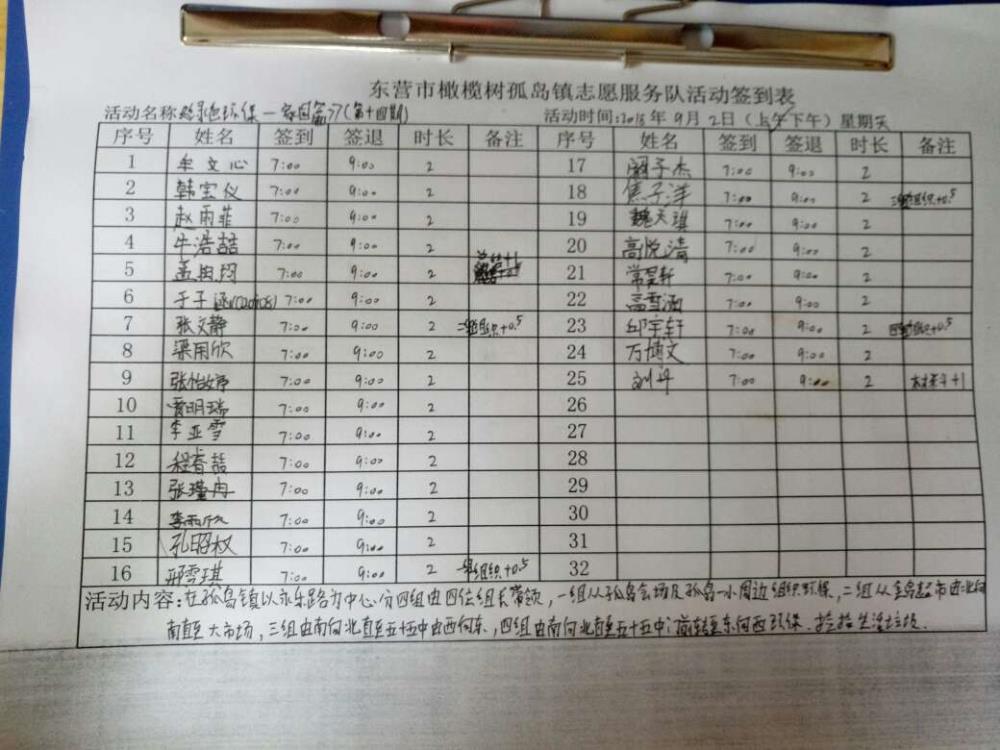 东营市橄榄树孤岛镇志愿服务队活动签到表
活动名称 环保 (第十四期) 活动时间:2018年9月2日(上午下午)星期天
序号 姓名 签到 签退 时长 备注 序号 姓名 签到 签退 时长 备注
1 牟文心 7:00 9:00 2 17 阚子杰 7:00 9:00 2
2 韩宝仪 7:00 9:00 2 18 焦子洋 7:00 9:00 2 三组组织+0.5
3 赵雨菲 7:00 9:00 2 19 魏天琪 7:00 9:00 2
4 牛浩喆 7:00 9:00 2 20 高悦清 7:00 9:00 2
5 孟 7:00 9:00 2 21 常昊轩 7:00 9:00 2
6 于子涵 7:00 9:00 2 22 孟雪涵 7:00 9:00 2
7 张文静 7:00 9:00 2 二组组织+0.5 23 邱宇轩 7:00 9:00 2 四组组织+0.5
8 梁用欣 7:00 9:00 2 24 万博文 7:00 9:00 2
9 张怡婷 7:00 9:00 2 25 刘丹 7:00 9:00 2 +1
10 贾明瑞 7:00 9:00 2 26
11 李亚雪 7:00 9:00 2 27
12 程睿喆 7:00 9:00 2 28
13 张瑾冉 7:00 9:00 2 29
14 李雨欣 7:00 9:00 2 30
15 孔昭权 7:00 9:00 2 31
16 邢雪琪 7:00 9:00 2 一组组织+0.5 32
活动内容:在孤岛镇以永乐路为中心分四组由四位组长带领,一组从孤岛会场及孤岛一小周边组织环保,二组从金岛超市西北向
南直至大市场,三组由南向北直至五十五中由西向东,四组由南向北直至五十五中 东向西环保.捡拾生活垃圾.